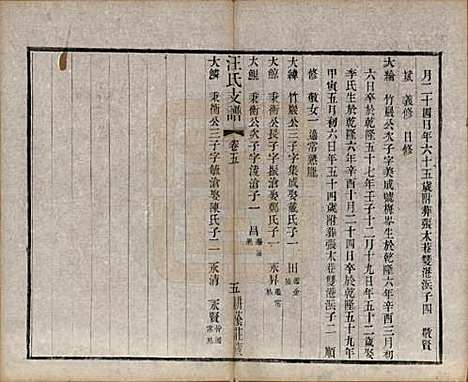 月二十四日年六十五歲附葬張太巷雙港浜子四　敬賢
斌　義修　日修
大輪　竹巖公次子字美成號梅岑生於乾隆六年辛酉三月初
六日卒於乾隆五十七年壬子十二月十九日年五十二歲娶
李氏生於乾隆六年辛酉十月二十四日卒於乾隆五十九年
甲寅五月初六日年五十四歲附葬張太巷雙港浜子二　順
修　敬女一　適常熟龐
大緯　竹巖公三子字集成娶戴氏子一　田
大鯨　秉衡公長子字振滄娶鄭氏子一　永昇
大鯤　秉衡公次子字淩滄子一　昌
大鱗　秉衡公三子字敏滄娶陳氏子二　永清　永賢
汪氏支譜　卷五　五　耕蔭莊